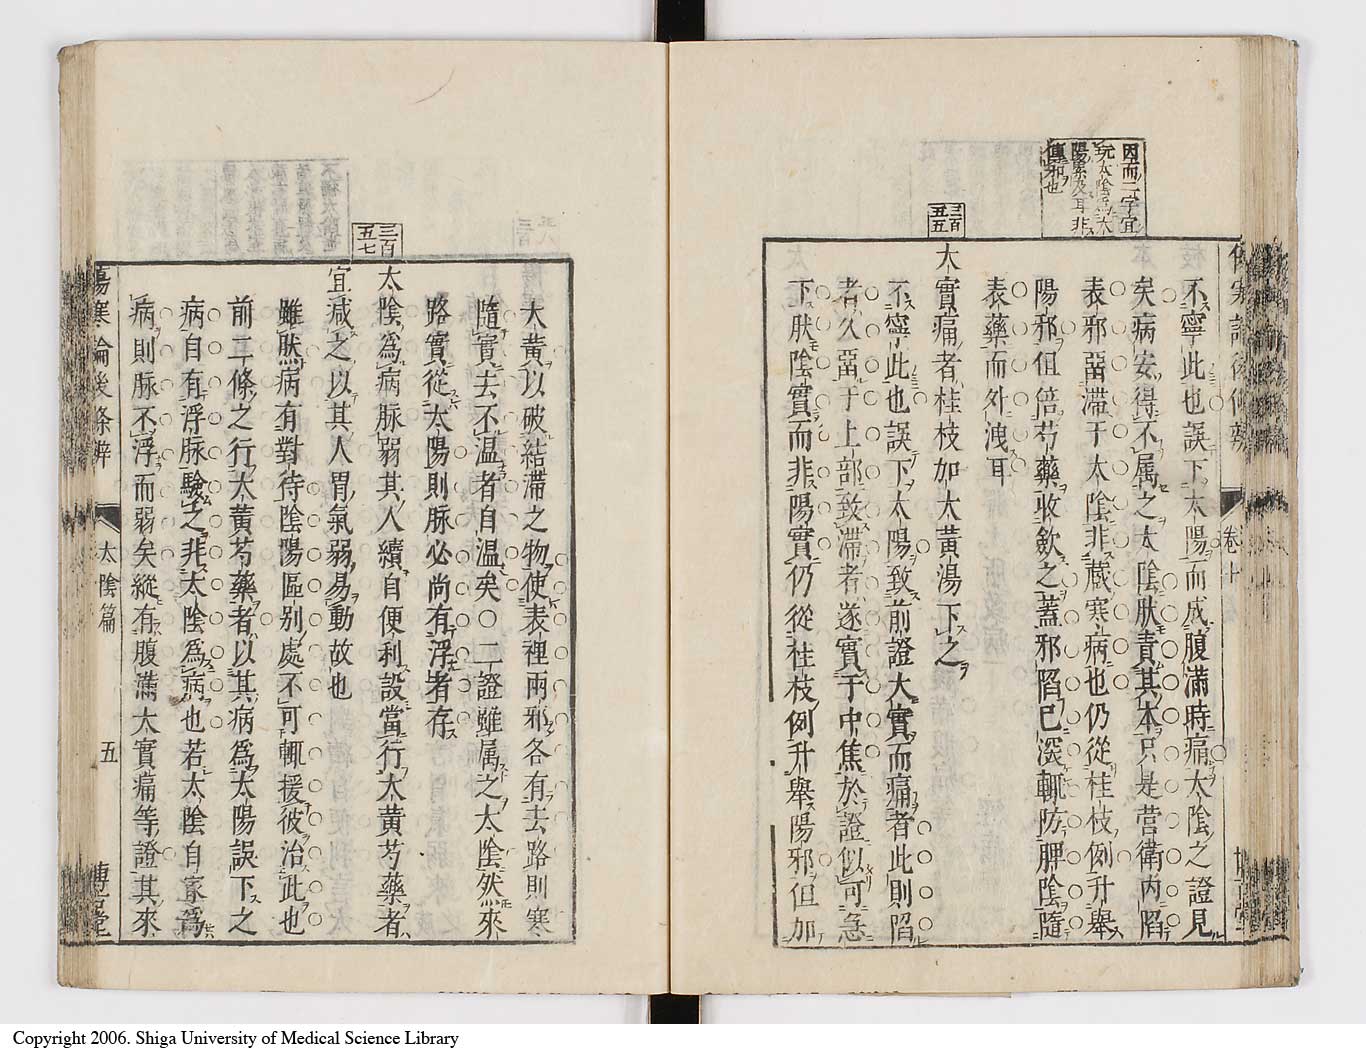 因而二字宜
玩太陰
陽累及耳非
傳邪也
卷十
不寧此也誤下太陽而成腹滿時痛太陰之證見
矣病安得不属之太陰肰責其本只是营衛内陷
表邪畱滞于太陰非藏寒病也仍從桂枝例升舉
陽邪但倍芍藥收歛之蓋邪陷已深輒防脾陰隨
表藥而外洩耳
三百
五五
大實痛者桂枝加大黄湯下之
不寧此也誤下太陽致前證大實而痛者此則陷
者久畱于上部致滞者遂實于中焦於證似可急
下肰陰實而非陽實仍從桂枝例升舉陽邪但加
大黄以破結滞之物使表裡兩邪各有去路則寒
隨實去不温者自温矣〇二證雖属之太陰然來
路實從太陽則脉必尚有浮者存
三百
五七
太陰為病脉弱其人續自便利設當行大黄芍藥者
宜减之以其人胃氣弱易動故也
雖肰病有對待陰陽區别處不可輒援彼治此也
前二條之行大黄芍藥者以其病為太陽誤下之
病自有浮脉驗之非太陰為病也若太陰自家為
病則脉不浮而弱矣縱有腹滿大實痛等證其來
傷寒論後條辨
太陰篇
五
博古堂